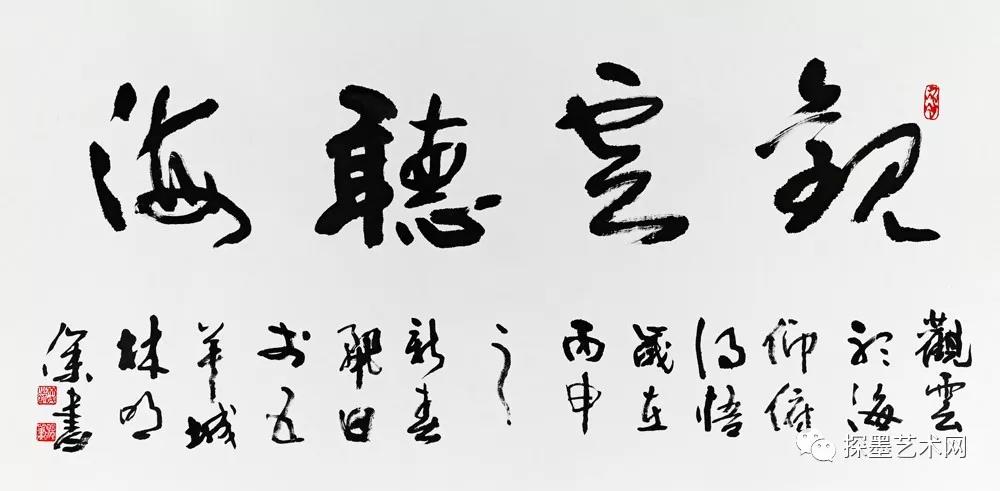 觀雲聽海
觀雲
聽海
仰俯
得悟
歲在
丙申
之
新春
麗日
於五
羊城
林明
書
探墨艺术网